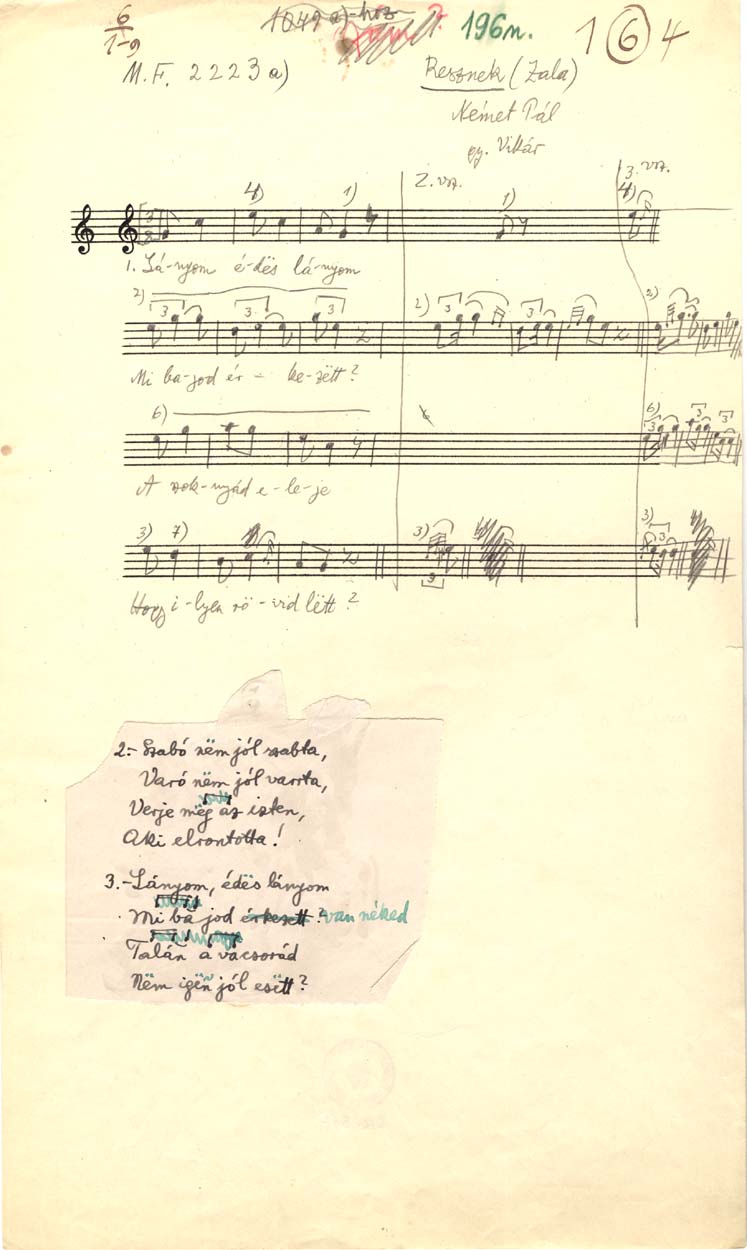 6
1-9
1049 a)-hoz
196n.
1 6 4
M.F. 2223a)
Resznek (Zala)
Német Pál
gy. Vikár
2. vsz.
3. vsz.
4) 1) 1) 4)
3
8
1. Lá-nyom é-dës lá-nyom
2) 3 3 3 2) 3 3 2)
Mi ba-jod ér - ke-zëtt?
6) 6) 3 3 3
A szok-nyád e-le-je
3) 7) 3) 9 3) 3
Hogy i-lyen rö-vid lëtt?
2.- Szabó nëm jól szabta,
Varó nëm jól varrta,
Verje mëg az isten,
Aki elrontotta!
3.- Lányom, édës lányom
Mi ba jod érkezett? van néked
Talán a vacsorád
Nëm igën jól esëtt?